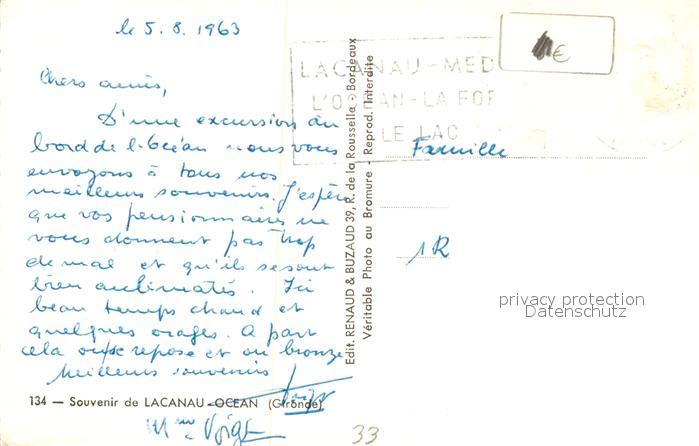 le 5.8.1963
Chers amis,
D'une excursion au
bord de l'Océan nous vous
envoyons à tous nos
meilleurs souvenirs. J'espère
que vos pensionnaires ne
vous donnent pas trop
de mal et qu'ils se sont
bien acclimatés. Ici
beau temps chaud et
quelques orages. A part
cela on se repose et on bronze
Meilleurs souvenirs
134 — Souvenir de LACANAU-OCEAN (Gironde)
Mme Voigt
Edit. RENAUD & BUZAUD 39, R. de la Rousselle - Bordeaux
Véritable Photo au Bromure - Reprod. Interdite
LACANAU-MED
L'OCEAN-LA FOR
LE LAC
€
Famille
1R
privacy protection
Datenschutz
33